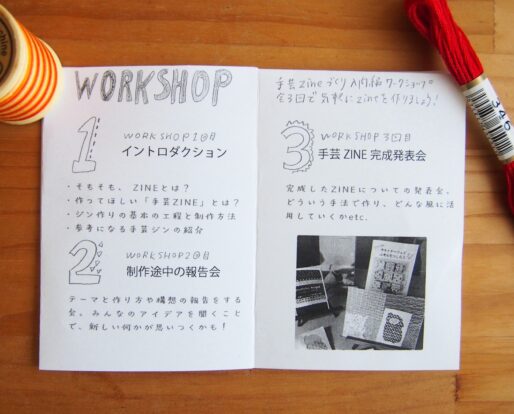 WORKSHOP
1
WORKSHOP1回目
イントロダクション
・そもそも、ZINEとは？
・作ってほしい「手芸ZINE」とは？
・ジン作りの基本の工程と制作方法
・参考になる手芸ジンの紹介
2
WORKSHOP2回目
制作途中の報告会
テーマと作り方や構想の報告をする
会。みんなのアイデアを聞くこと
で、新しい何かが思いつくかも！
手芸zineづくり入門編ワークショップ。
全3回で気軽にzineを作りましょう！
3
WORKSHOP 3回目
手芸 ZINE 完成発表会
完成したZINEについての発表会。
どういう手法で作り、どんな風に活
用していくかetc.
346